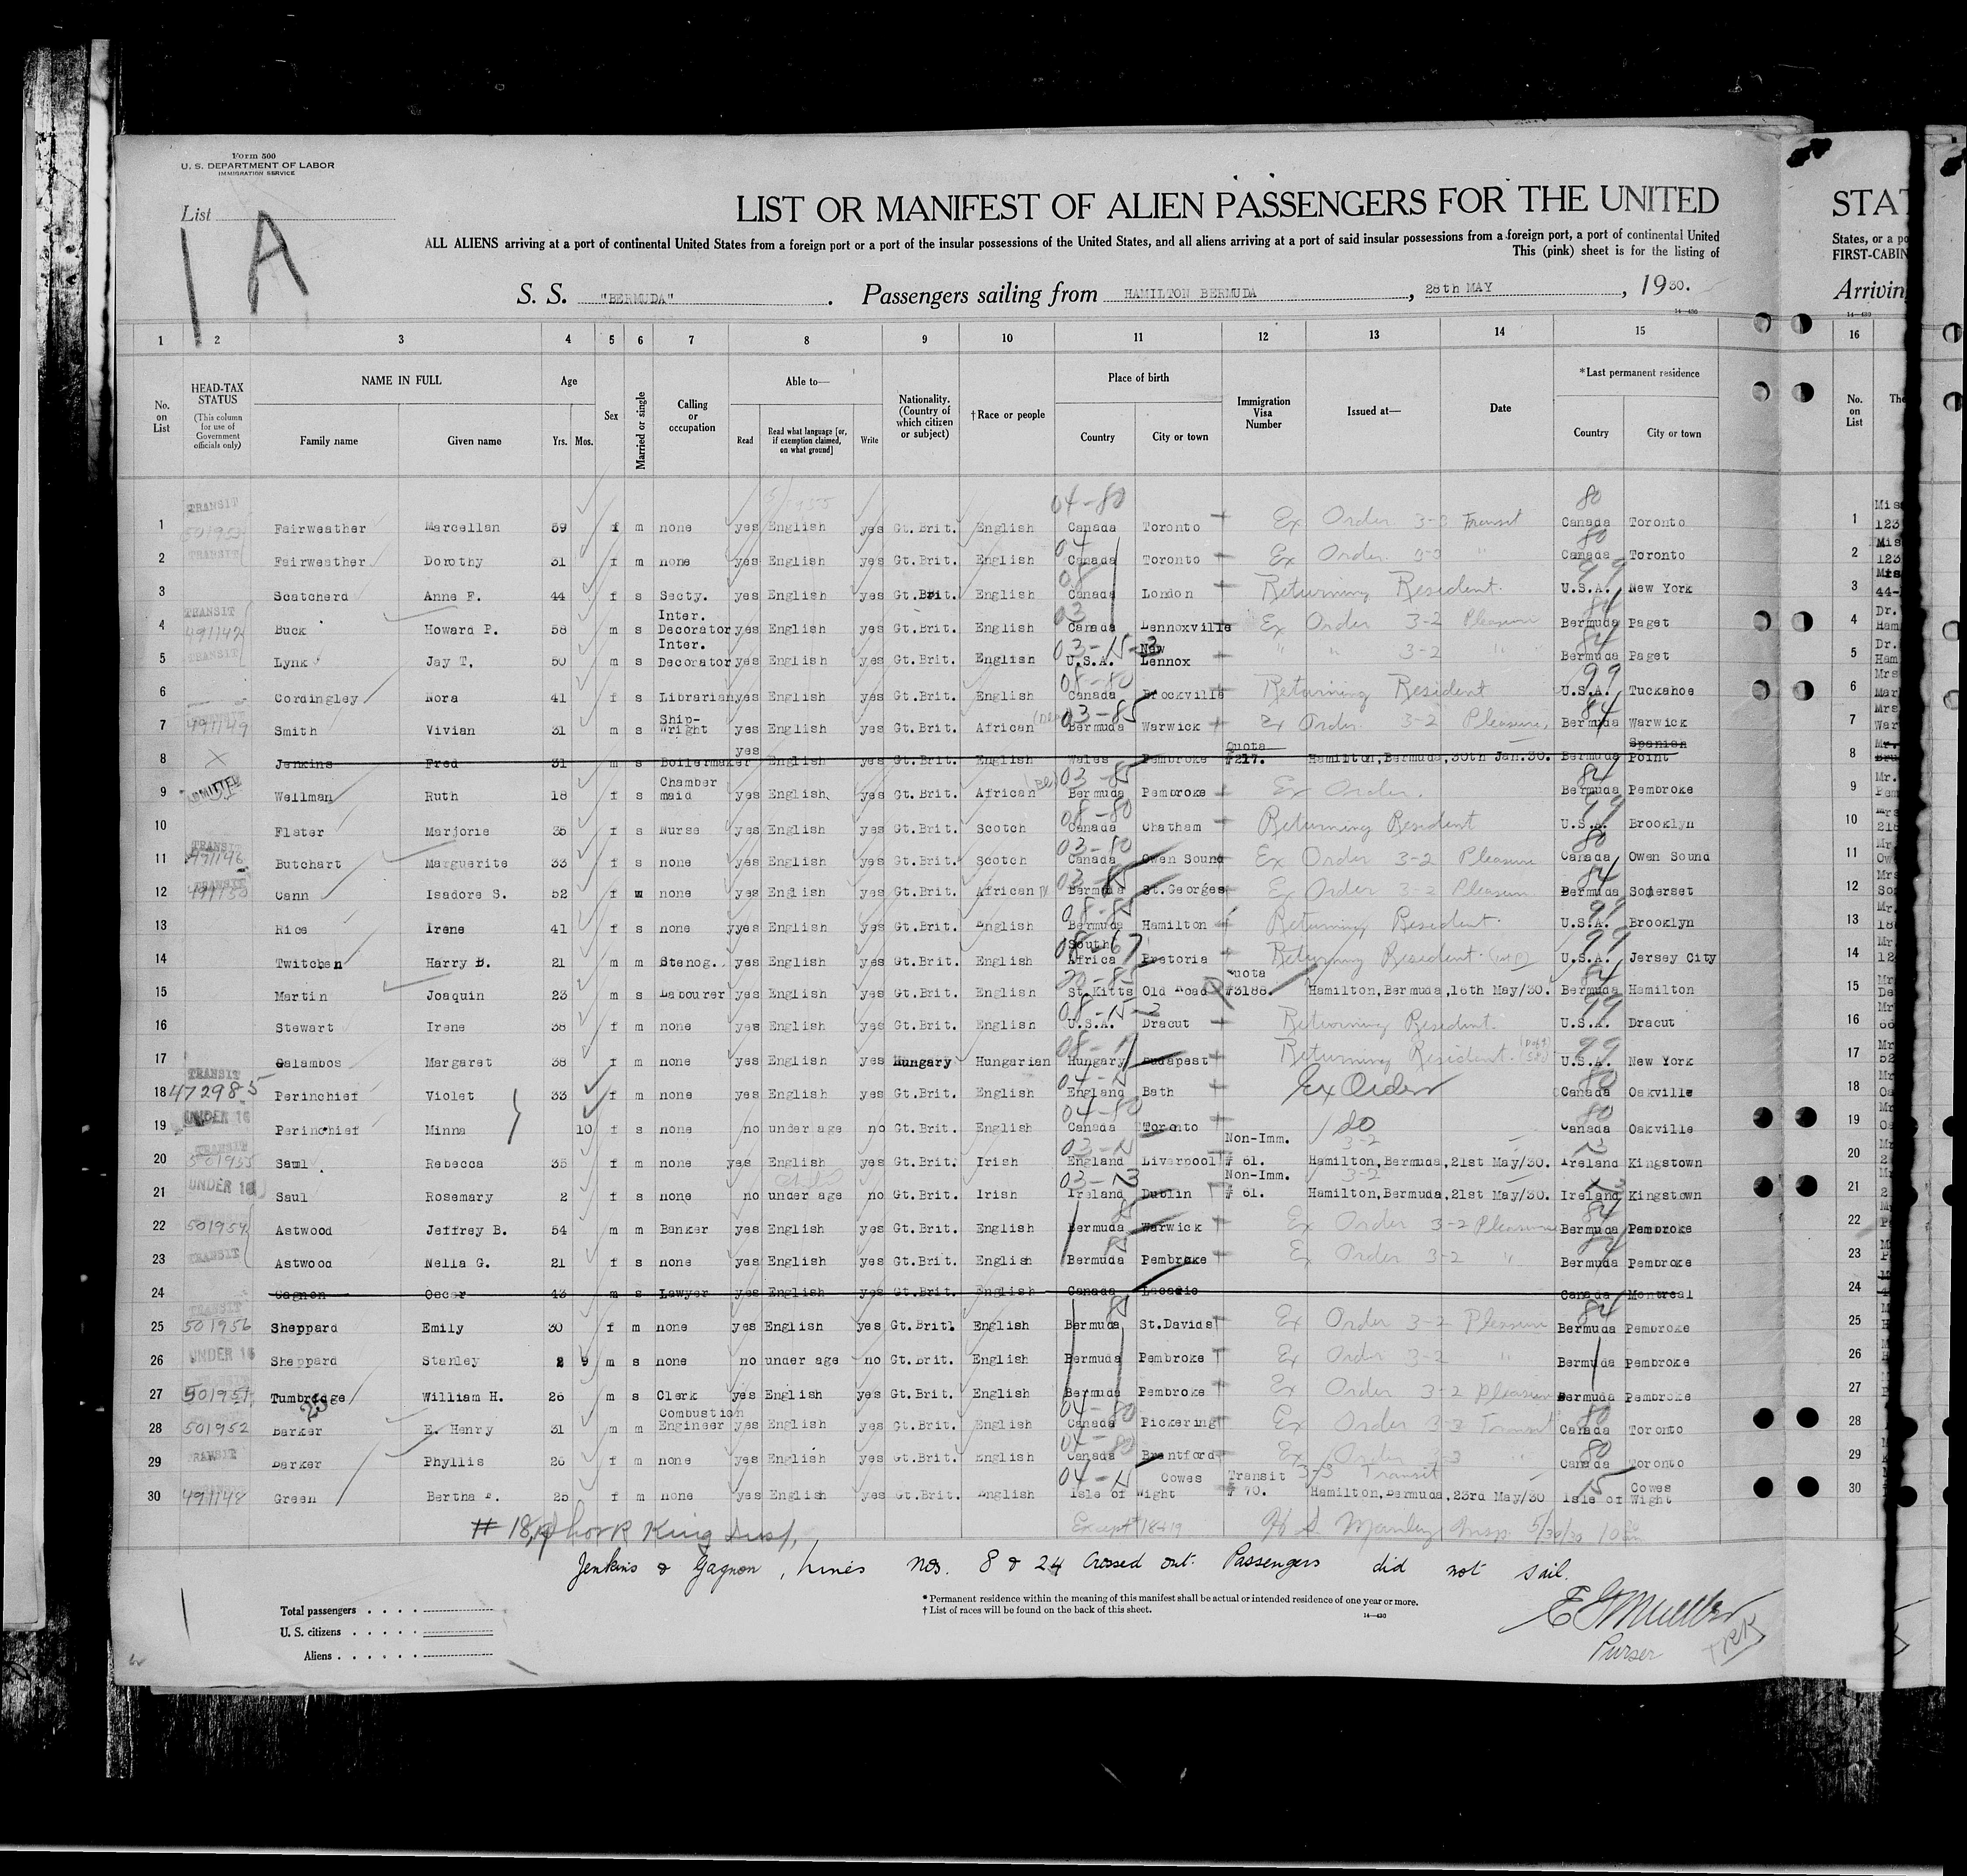 Form 500
U. S. DEPARTMENT OF LABOR
IMMIGRATION SERVICE
List
1 A
LIST OR MANIFEST OF ALIEN PASSENGERS FOR THE UNITED
ALL ALIENS arriving at a port of continental United States from a foreign port or a port of the insular possessions of the United States, and all aliens arriving at a port of said insular possessions from a foreign port, a port of continental United
This (pink) sheet is for the listing of
S. S. "BERMUDA". Passengers sailing from HAMILTON BERMUDA, 28th MAY, 1930.
14—430
1 2 3 4 5 6 7 8 9 10 11 12 13 14 15
No. on List
HEAD-TAX STATUS (This column for use of Government officials only)
NAME IN FULL Family name Given name
Age Yrs. Mos.
Sex
Married or single
Calling or occupation
Able to— Read Read what language [or, if exemption claimed, on what ground] Write
Nationality. (Country of which citizen or subject)
†Race or people
Place of birth Country City or town
Immigration Visa Number
Issued at—
Date
*Last permanent residence Country City or town
1 TRANSIT Fairweather Marcellan 59 f m none yes English yes Gt.Brit. English 04-80 Canada Toronto Ex Order 3-3 Transit 80 Canada Toronto
2 TRANSIT Fairweather Dorothy 31 f m none yes English yes Gt.Brit. English 04 Canada Toronto Ex Order 3-3 " 80 Canada Toronto
3 Scatcherd Anne F. 44 f s Secty. yes English yes Gt.Brit. English 08 Canada London Returning Resident 99 U.S.A. New York
4 TRANSIT 491147 Buck Howard P. 58 m s Inter. Decorator yes English yes Gt.Brit. English 03 Canada Lennoxville Ex Order 3-2 Pleasure 84 Bermuda Paget
5 TRANSIT Lynk Jay T. 50 m s Inter. Decorator yes English yes Gt.Brit. English U.S.A. New Lennox " " 3-2 " " 84 Bermuda Paget
6 Cordingley Nora 41 f s Librarian yes English yes Gt.Brit. English 08-80 Canada Brockville Returning Resident 99 U.S.A. Tuckahoe
7 491149 Smith Vivian 31 m s Ship-Wright yes English yes Gt.Brit. African 03-85 Bermuda Warwick Ex Order 3-2 Pleasure 84 Bermuda Warwick
8 X Jenkins Fred 31 m s Boilermaker yes English yes Gt.Brit. English Wales Pembroke Quota #217. Hamilton,Bermuda,30th Jan.30. Bermuda Spanish Point
9 ADMITTED Wellman Ruth 18 f s Chamber maid yes English yes Gt.Brit. African 03-85 Bermuda Pembroke Ex Order. 84 Bermuda Pembroke
10 Flater Marjorie 35 f s Nurse yes English yes Gt.Brit. Scotch 08-80 Canada Chatham Returning Resident 99 U.S.A. Brooklyn
11 TRANSIT 491146 Butchart Marguerite 33 f s none yes English yes Gt.Brit. Scotch 03-80 Canada Owen Sound Ex Order 3-2 Pleasure 80 Canada Owen Sound
12 TRANSIT 491150 Cann Isadore S. 52 f w none yes English yes Gt.Brit. African Bermuda St.Georges Ex Order 3-2 Pleasure 84 Bermuda Somerset
13 Rice Irene 41 f s none yes English yes Gt.Brit. English Bermuda Hamilton Returning Resident 99 U.S.A. Brooklyn
14 Twitchen Harry B. 21 m m Stenog. yes English yes Gt.Brit. English South Africa Pretoria Returning Resident 99 U.S.A. Jersey City
15 Martin Joaquin 23 m s Labourer yes English yes Gt.Brit. English St.Kitts Old Road Quota #3188 Hamilton,Bermuda,16th May/30. 84 Bermuda Hamilton
16 Stewart Irene 38 f m none yes English yes Gt.Brit. English U.S.A. Dracut Returning Resident. 99 U.S.A. Dracut
17 Galambos Margaret 38 f m none yes English yes Hungary Hungarian Hungary Budapest Returning Resident. 99 U.S.A. New York
18 TRANSIT 472985 Perinchief Violet 33 f m none yes English yes Gt.Brit. English England Bath Ex Order 80 Canada Oakville
19 UNDER 16 Perinchief Minna 10 f s none no under age no Gt.Brit. English 04-80 Canada Toronto do 80 Canada Oakville
20 TRANSIT 501955 Saul Rebecca 35 f m none yes English yes Gt.Brit. Irish England Liverpool Non-Imm. # 61. 3-2 Hamilton,Bermuda,21st May/30. Ireland Kingstown
21 UNDER 16 Saul Rosemary 2 f s none no under age no Gt.Brit. Irish Ireland Dublin Non-Imm. # 61. 3-2 Hamilton,Bermuda,21st May/30. Ireland Kingstown
22 501954 Astwood Jeffrey B. 54 m m Banker yes English yes Gt.Brit. English Bermuda Warwick Ex Order 3-2 Pleasure 84 Bermuda Pembroke
23 TRANSIT Astwood Nella G. 21 f s none yes English yes Gt.Brit. English Bermuda Pembroke Ex Order 3-2 " Bermuda Pembroke
24 Gagnon Oscar 43 m s Lawyer yes English yes Gt.Brit. English Canada Lacadie Canada Montreal
25 TRANSIT 501956 Sheppard Emily 30 f m none yes English yes Gt.Brit. English Bermuda St.Davids Ex Order 3-2 Pleasure 84 Bermuda Pembroke
26 UNDER 16 Sheppard Stanley 2 9 m s none no under age no Gt.Brit. English Bermuda Pembroke Ex Order 3-2 " Bermuda Pembroke
27 501951 Tumbridge William H. 26 m s Clerk yes English yes Gt.Brit. English Bermuda Pembroke Ex Order 3-2 Pleasure Bermuda Pembroke
28 501952 Barker E. Henry 31 m m Combustion Engineer yes English yes Gt.Brit. English 04-80 Canada Pickering Ex Order 3-3 Transit 80 Canada Toronto
29 TRANSIT Barker Phyllis 26 f m none yes English yes Gt.Brit. English 04-80 Canada Brantford Ex Order 3-3 " 80 Canada Toronto
30 491148 Green Bertha 25 f m none yes English yes Gt.Brit. English Isle of Wight Cowes Transit # 70. 3-3 Transit Hamilton,Bermuda,23rd May/30 Isle of Wight Cowes
Except 18+19 Insp. 5/30/30
Jenkins & Gagnon, Lines Nos. 8 & 24 crossed out. Passengers did not sail.
* Permanent residence within the meaning of this manifest shall be actual or intended residence of one year or more.
† List of races will be found on the back of this sheet.
14—430
Total passengers
U. S. citizens
Aliens
Purser
STAT
States, or a po
FIRST-CABIN
Arriving
14—430
16
No. on List